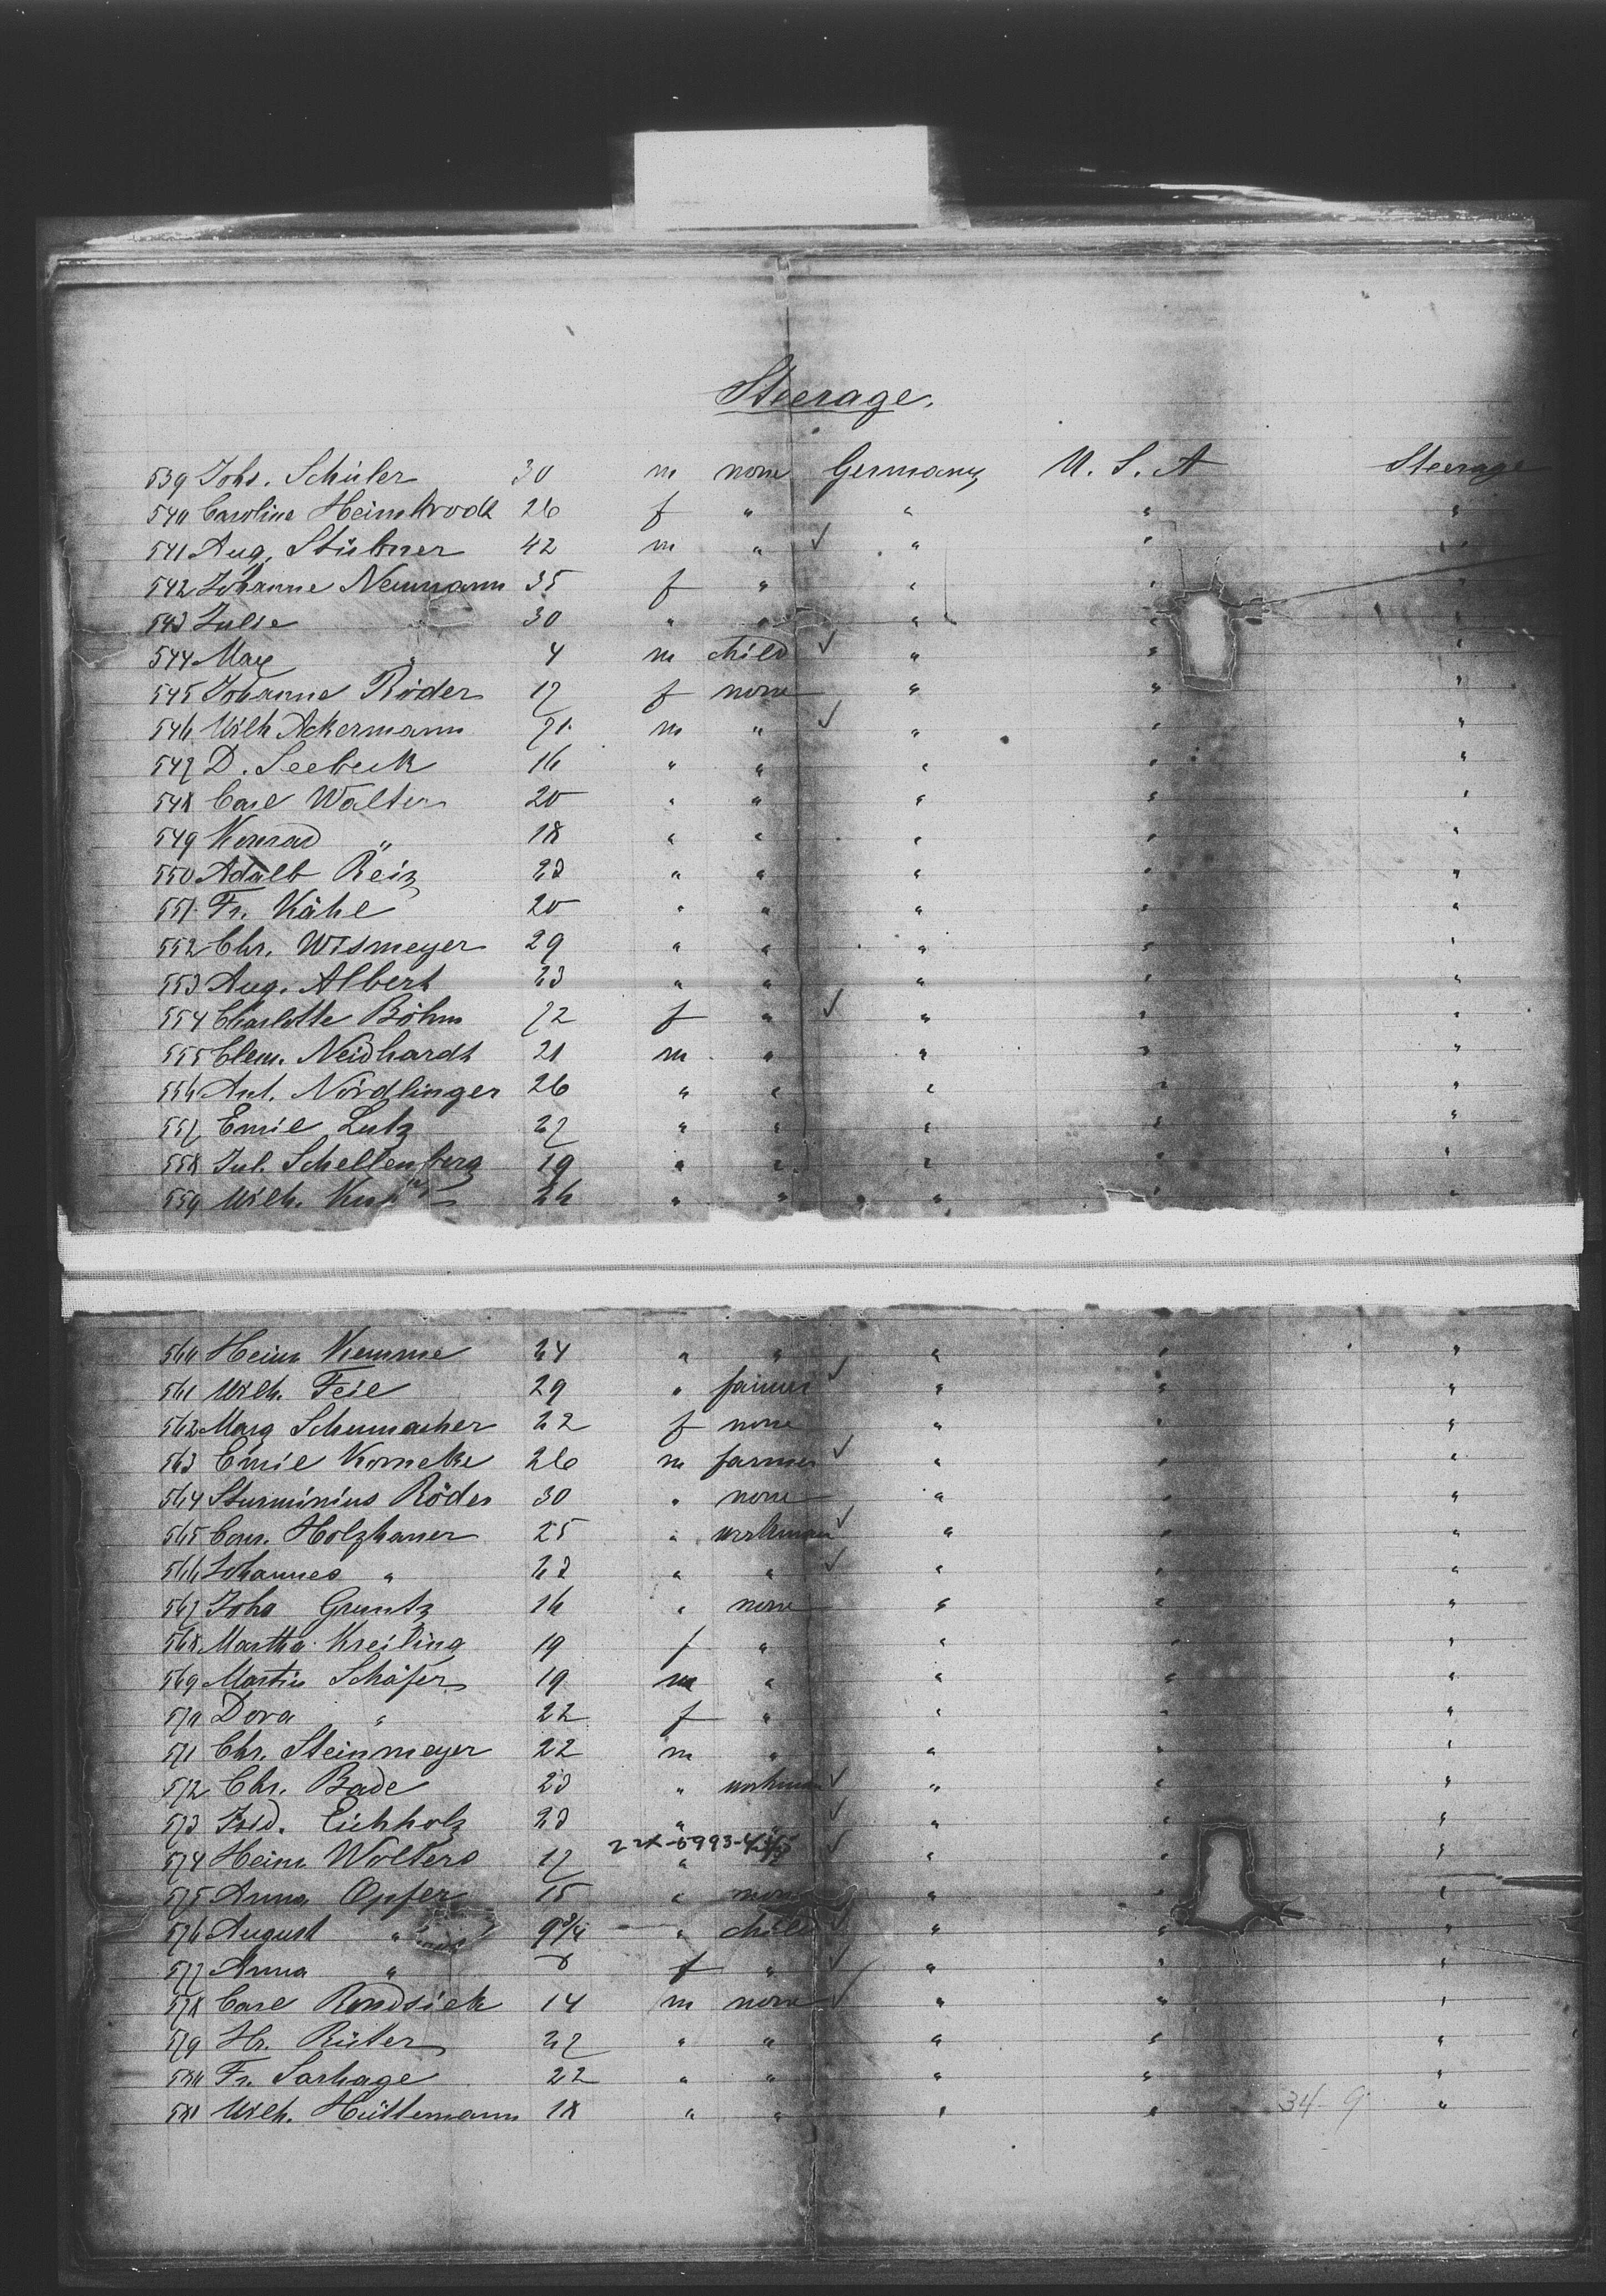 Steerage.
539 Johs. Schüler 30 m none Germany U. S. A Steerage
540 Caroline Heimbrodt 26 f " " " "
541 Aug. Stübner 42 m " ✓ " " "
542 Johanne Neumann 35 f " " " "
543 Julie " 30 " " " " "
544 Max " 4 m child ✓ " " "
545 Johanne Röder 17 f none " " "
546 Wilh Ackermann 71 m " ✓ " " "
547 D. Seebeck 16 " " " " "
548 Carl Walter 20 " " " " "
549 Konrad " 18 " " " " "
550 Adalb Reiz 23 " " " " "
551 Fr. Kähl 20 " " " " "
552 Chr. Wismeyer 29 " " " " "
553 Aug. Albert 23 " " " " "
554 Charlotte Böhm 72 f " ✓ " " "
555 Clem. Neidhardt 21 m " " " "
556 Ant. Nördlinger 26 " " " " "
557 Emil Lutz 27 " " " " "
558 Jul. Schellenberg 19 " " " " "
559 Wilh. 26 " " " " "
560 Heinr Kemme 24 " " " " "
561 Wilh. Feil 29 " farmer ✓ " " "
562 Marg Schumacher 22 f none " " "
563 Emil Korneke 26 m farmer ✓ " " "
564 Sturminius Röder 30 " none " " "
565 Con. Holzhauer 25 " workman ✓ " " "
566 Johannes " 23 " " ✓ " " "
567 Johs Gruntz 16 " none " " "
568 Martha Kreiling 19 f " " " "
569 Martin Schäfer 19 m " " " "
570 Dora " 22 f " " " "
571 Chr. Steinmeyer 22 m " " " "
572 Chr. Bade 23 " workman ✓ " " "
573 Frid. Eichholz 23 " " ✓ " " "
574 Heinr. Wolters 17 " " ✓ " " "
575 Anna Opfer 15 " none " " "
576 August " 9 3/4 " child ✓ " " "
577 Anna " 8 f " ✓ " " "
578 Carl Rondsiek 14 m none ✓ " " "
579 Hr. Rüter 27 " " " " "
580 Fr. Sarhage 22 " " " " "
581 Wilh. Hüttemann 18 " " " " 34-9 "